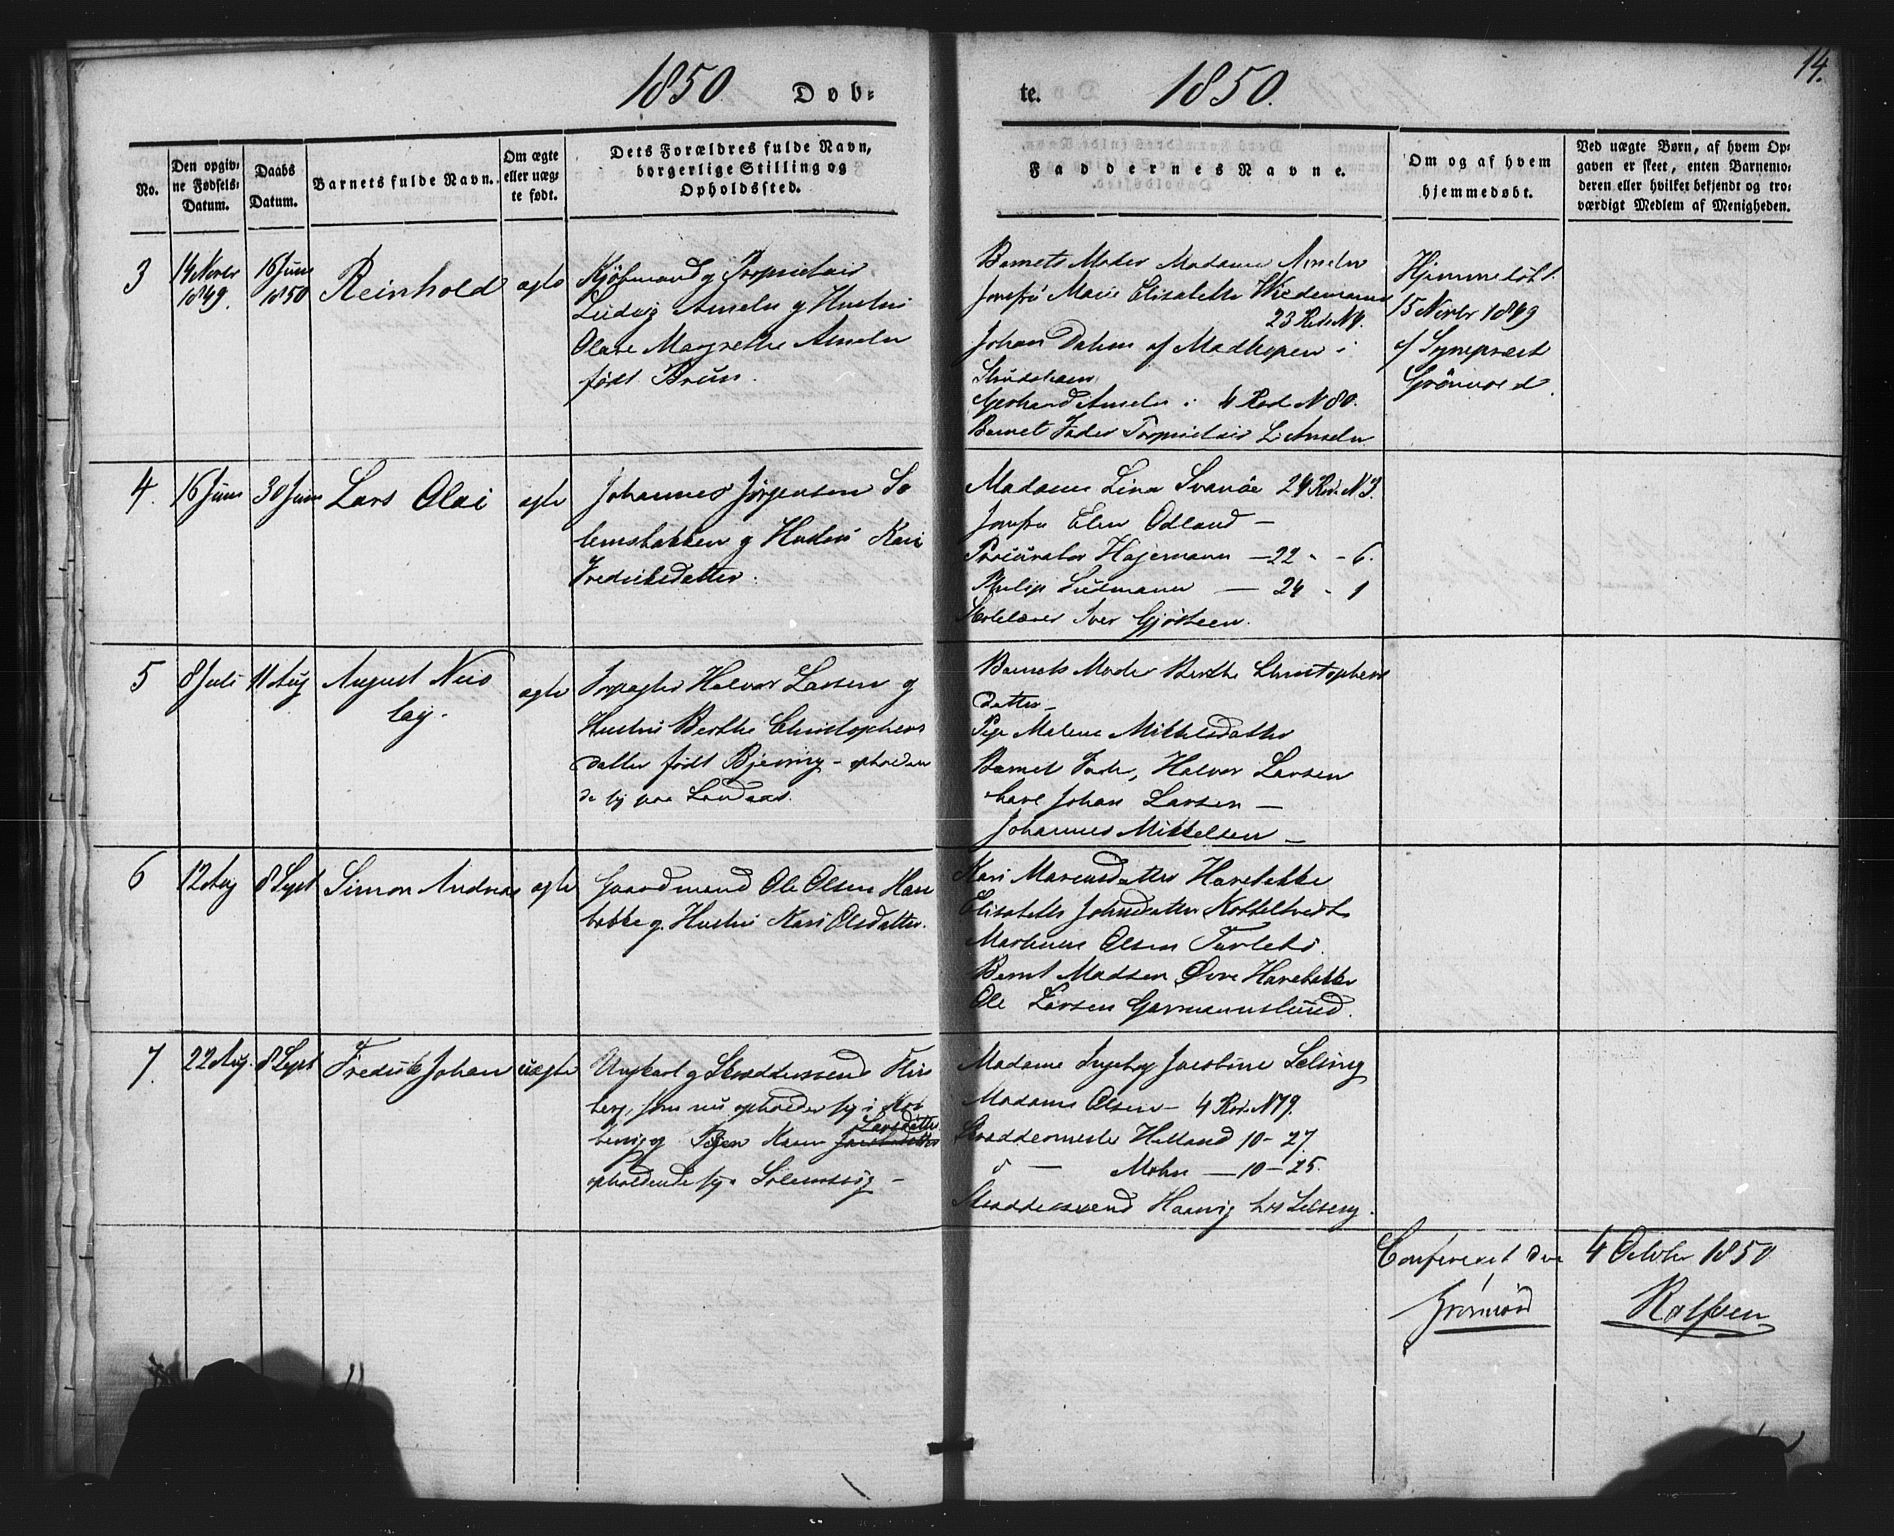 1850 Døb-
te. 1850.
14.
No.
Den opgiv-
ne Fødsels-
Datum.
Daabs
Datum.
Barnets fulde Navn.
Om ægte
eller uæg-
te født.
Dets Forældres fulde Navn,
borgerlige Stilling og
Opholdssted.
Faddernes Navne.
Om og af hvem
hjemmedøbt.
Ved uægte Børn, af hvem Op-
gaven er skeet, enten Barnemo-
deren eller hvilket bekjendt og tro-
værdigt Medlem af Menigheden.
3
14 Novbr
1849.
16 Juni
1850
Reinhold
ægte
Kjøbmand og Proprietair
Ludvig og Hustru
Olave Margrethe
født Brun.
Barnets Moder Madame
Jomfru Marie Elisabeth Wiedemann
23 Rod. N 4.
Johan Dahm af Madhopen i
Gerhard i 4 Rod N 80.
Barnets Fader Proprietair L.
Hjemmedøbt
15 Novbr 1849
af Sognepræst
Grönvold
4.
16 Juni
30 Juni
Lars Olai
ægte
Johannes Jørgensen So
lemsbakken og Hustru Kari
Fredriksdatter.
Madame Lina Svanøe 24 Rod. N 3.
Jomfru Elen Odland –
Procurator Hagemann – 22 - - 6.
Philip Sudmann — 24 - 1
Skolelærer Iver Gjørtsen.
5
8 Juli
11 Aug
August Nico
lay.
ægte
Forpagter Halvor Larsen og
Hustru Berthe Christophers
datter født Bjering – opholden
de sig paa Landaas.
Barnets Moder Berthe Christophers
datter –
Pige Malene Mikkelsdatter
Barnet Fader, Halvor Larsen
Johan Larsen –
Johannes Mikkelsen –
6
12 Aug
8 Sept
Simon Andreas
ægte
Gaardmand Ole Olsen Hare
bakke og Hustru Kari Olsdatter.
Kari Monsdatter Harebakke
Elisabeth Johnsdatter
Marthinus Olsen
Bernt Madsen Øvre Harebakke
Ole Larsen Garmannslund.
7.
22 Aug.
8 Sept
Fredrik Johan
uægte
Ungkarl og Skræddersvend
som nu opholder sig i
og Pigen Karen Jacobsdatter
Larsdatter
opholdende sig
Madame Ingeborg Jacobine
Madame Olsen – 4 Rod. N 79.
Skræddermester Helland 10 – 27.
d — Mohn — 10 – 25.
Skræddersvend hos
Confereret den 4 October 1850
Grönvold
Rolfsen